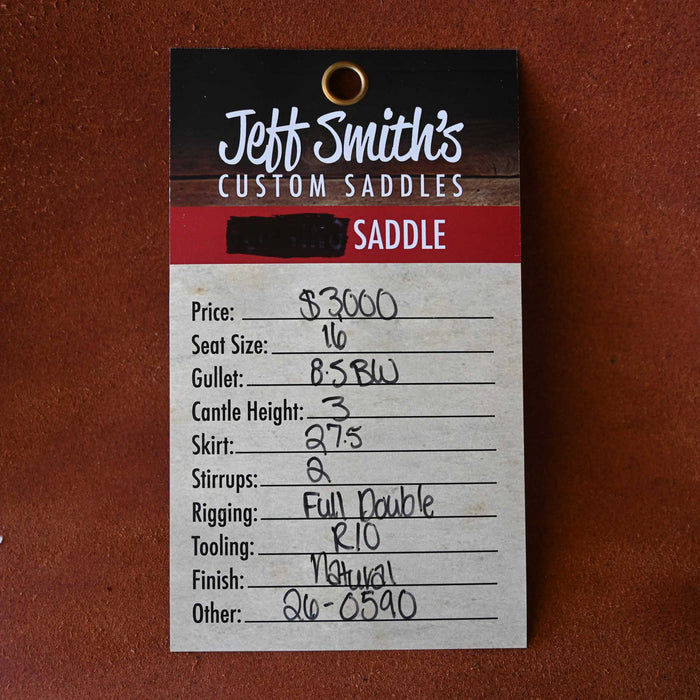 Jeff Smith's
CUSTOM SADDLES
SADDLE
Price: $3000
Seat Size: 16
Gullet: 8.5BW
Cantle Height: 3
Skirt: 27.5
Stirrups: 2
Rigging: Full Double
Tooling: R10
Finish: Natural
Other: 26-0590